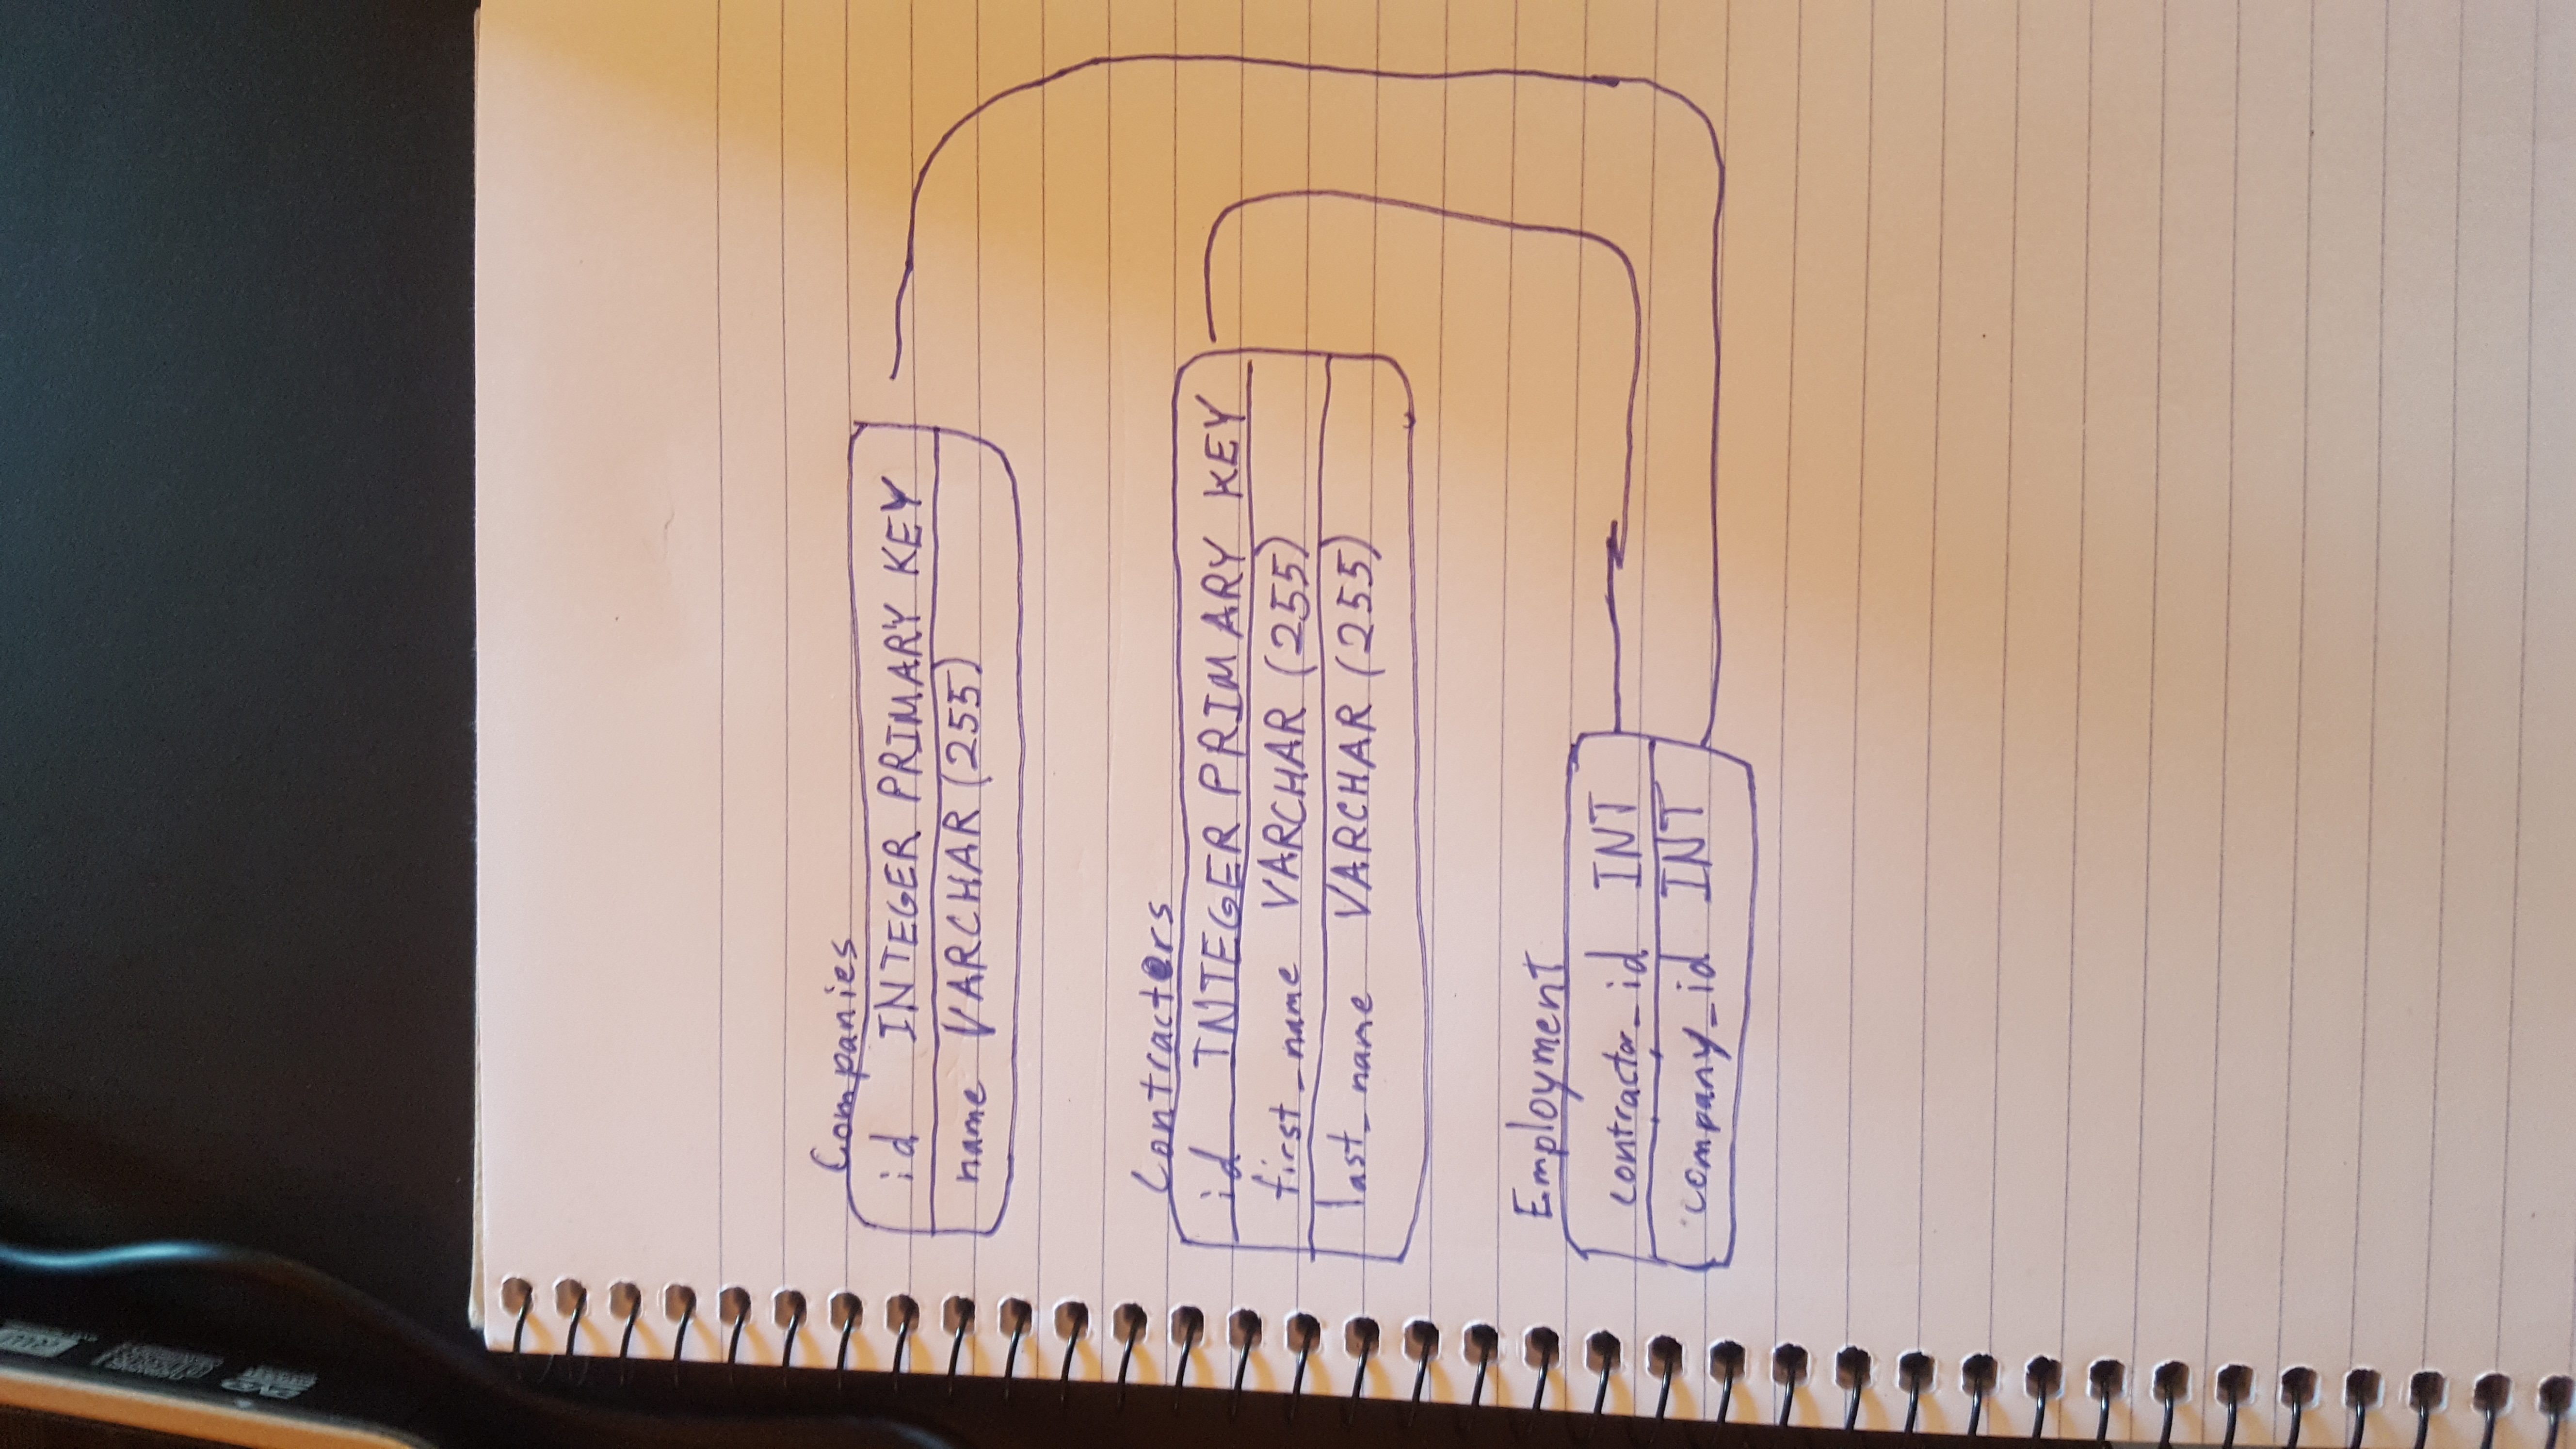 Companies
id INTEGER PRIMARY KEY
name VARCHAR (255)
Contractors
id INTEGER PRIMARY KEY
first_name VARCHAR (255)
last_name VARCHAR (255)
Employment
contractor_id INT
company_id INT